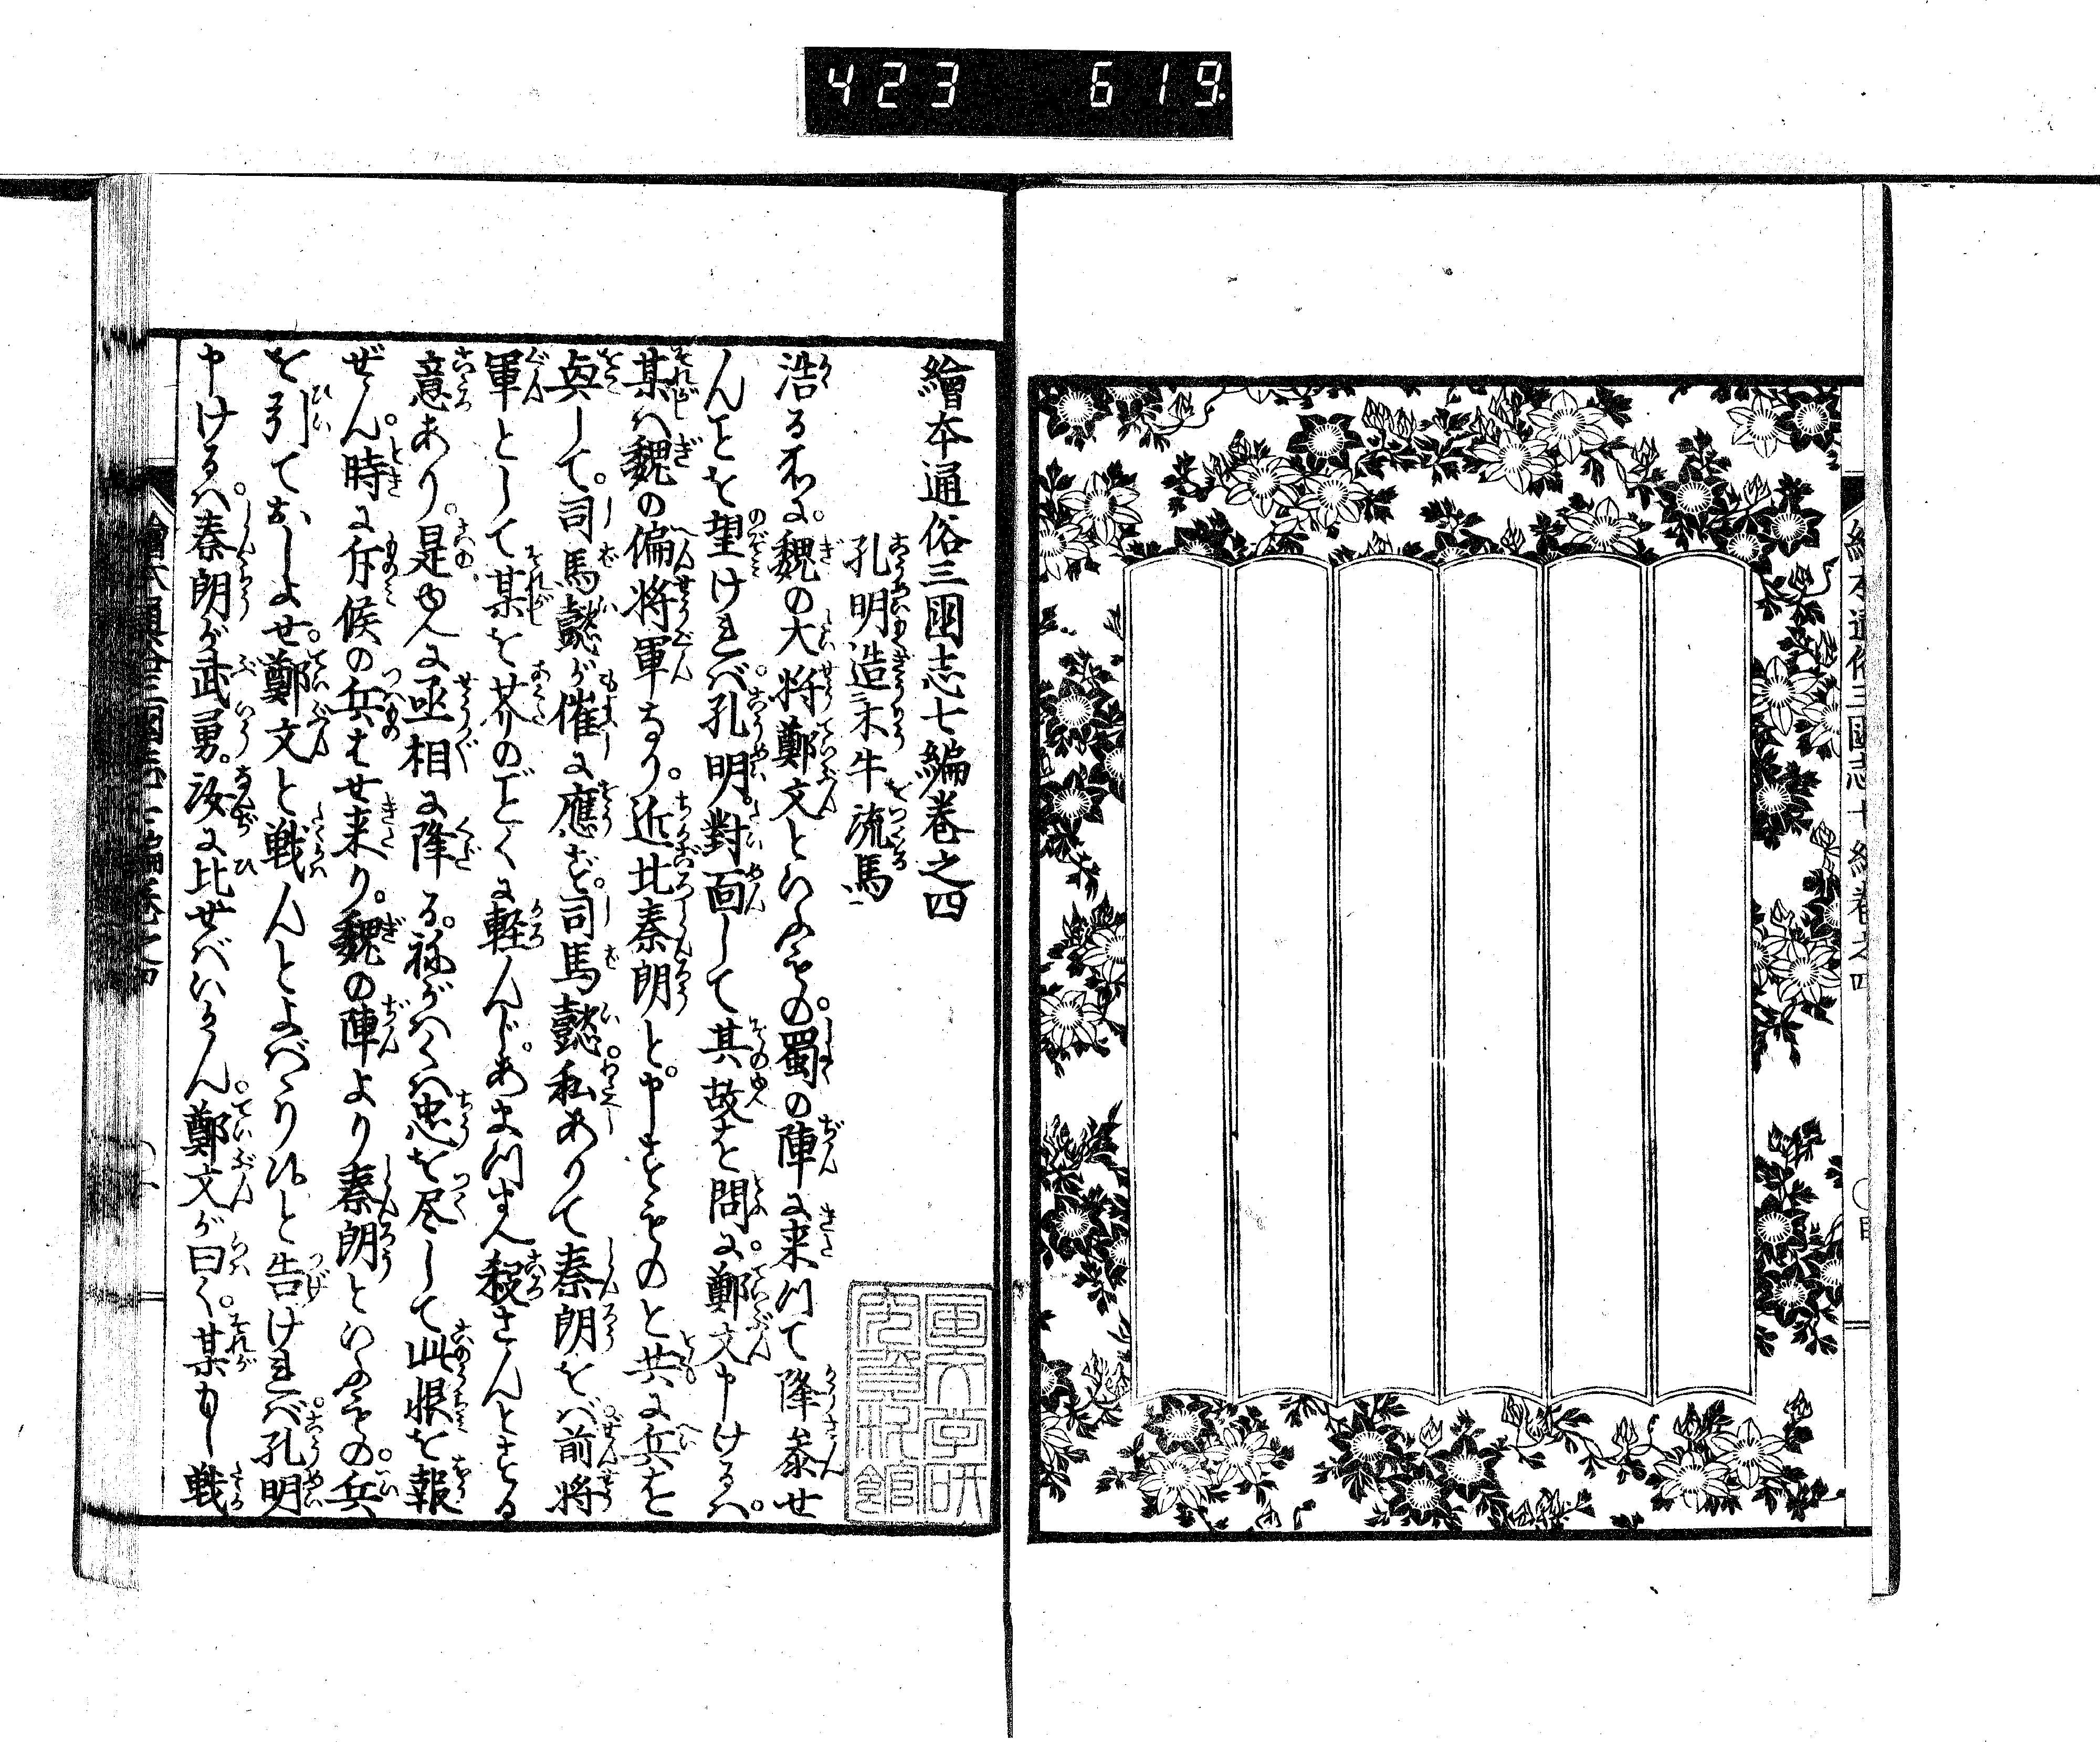 423 619
繪本通俗三國志七編巻之四
繪本通俗三國志七編巻之四
孔明造木牛流馬
浩る所に。魏の大将鄭文といふもの。蜀の陣に来つて降参せ
んことを望けれバ。孔明。對面して其故を問に。鄭文申けるハ。
某ハ魏の偏将軍なり。近比秦朗と申すものと共に兵を
與して。司馬懿が催に應ず。司馬懿。私ありて秦朗をバ前将
軍として某を芥のごとくに軽んじ。あまつさへ殺さんとする
意あり。是ゆへに丞相に降る。ねがハくハ忠を尽して此恨を報
ぜん。時に斥候の兵はせ来り。魏の陣より秦朗といふもの。兵
を引ておしよせ。鄭文と戦んとよばゝり候と告けれバ。孔明
申けるハ。秦朗が武勇。汝に比せバいかん。鄭文が曰く。某もし戦